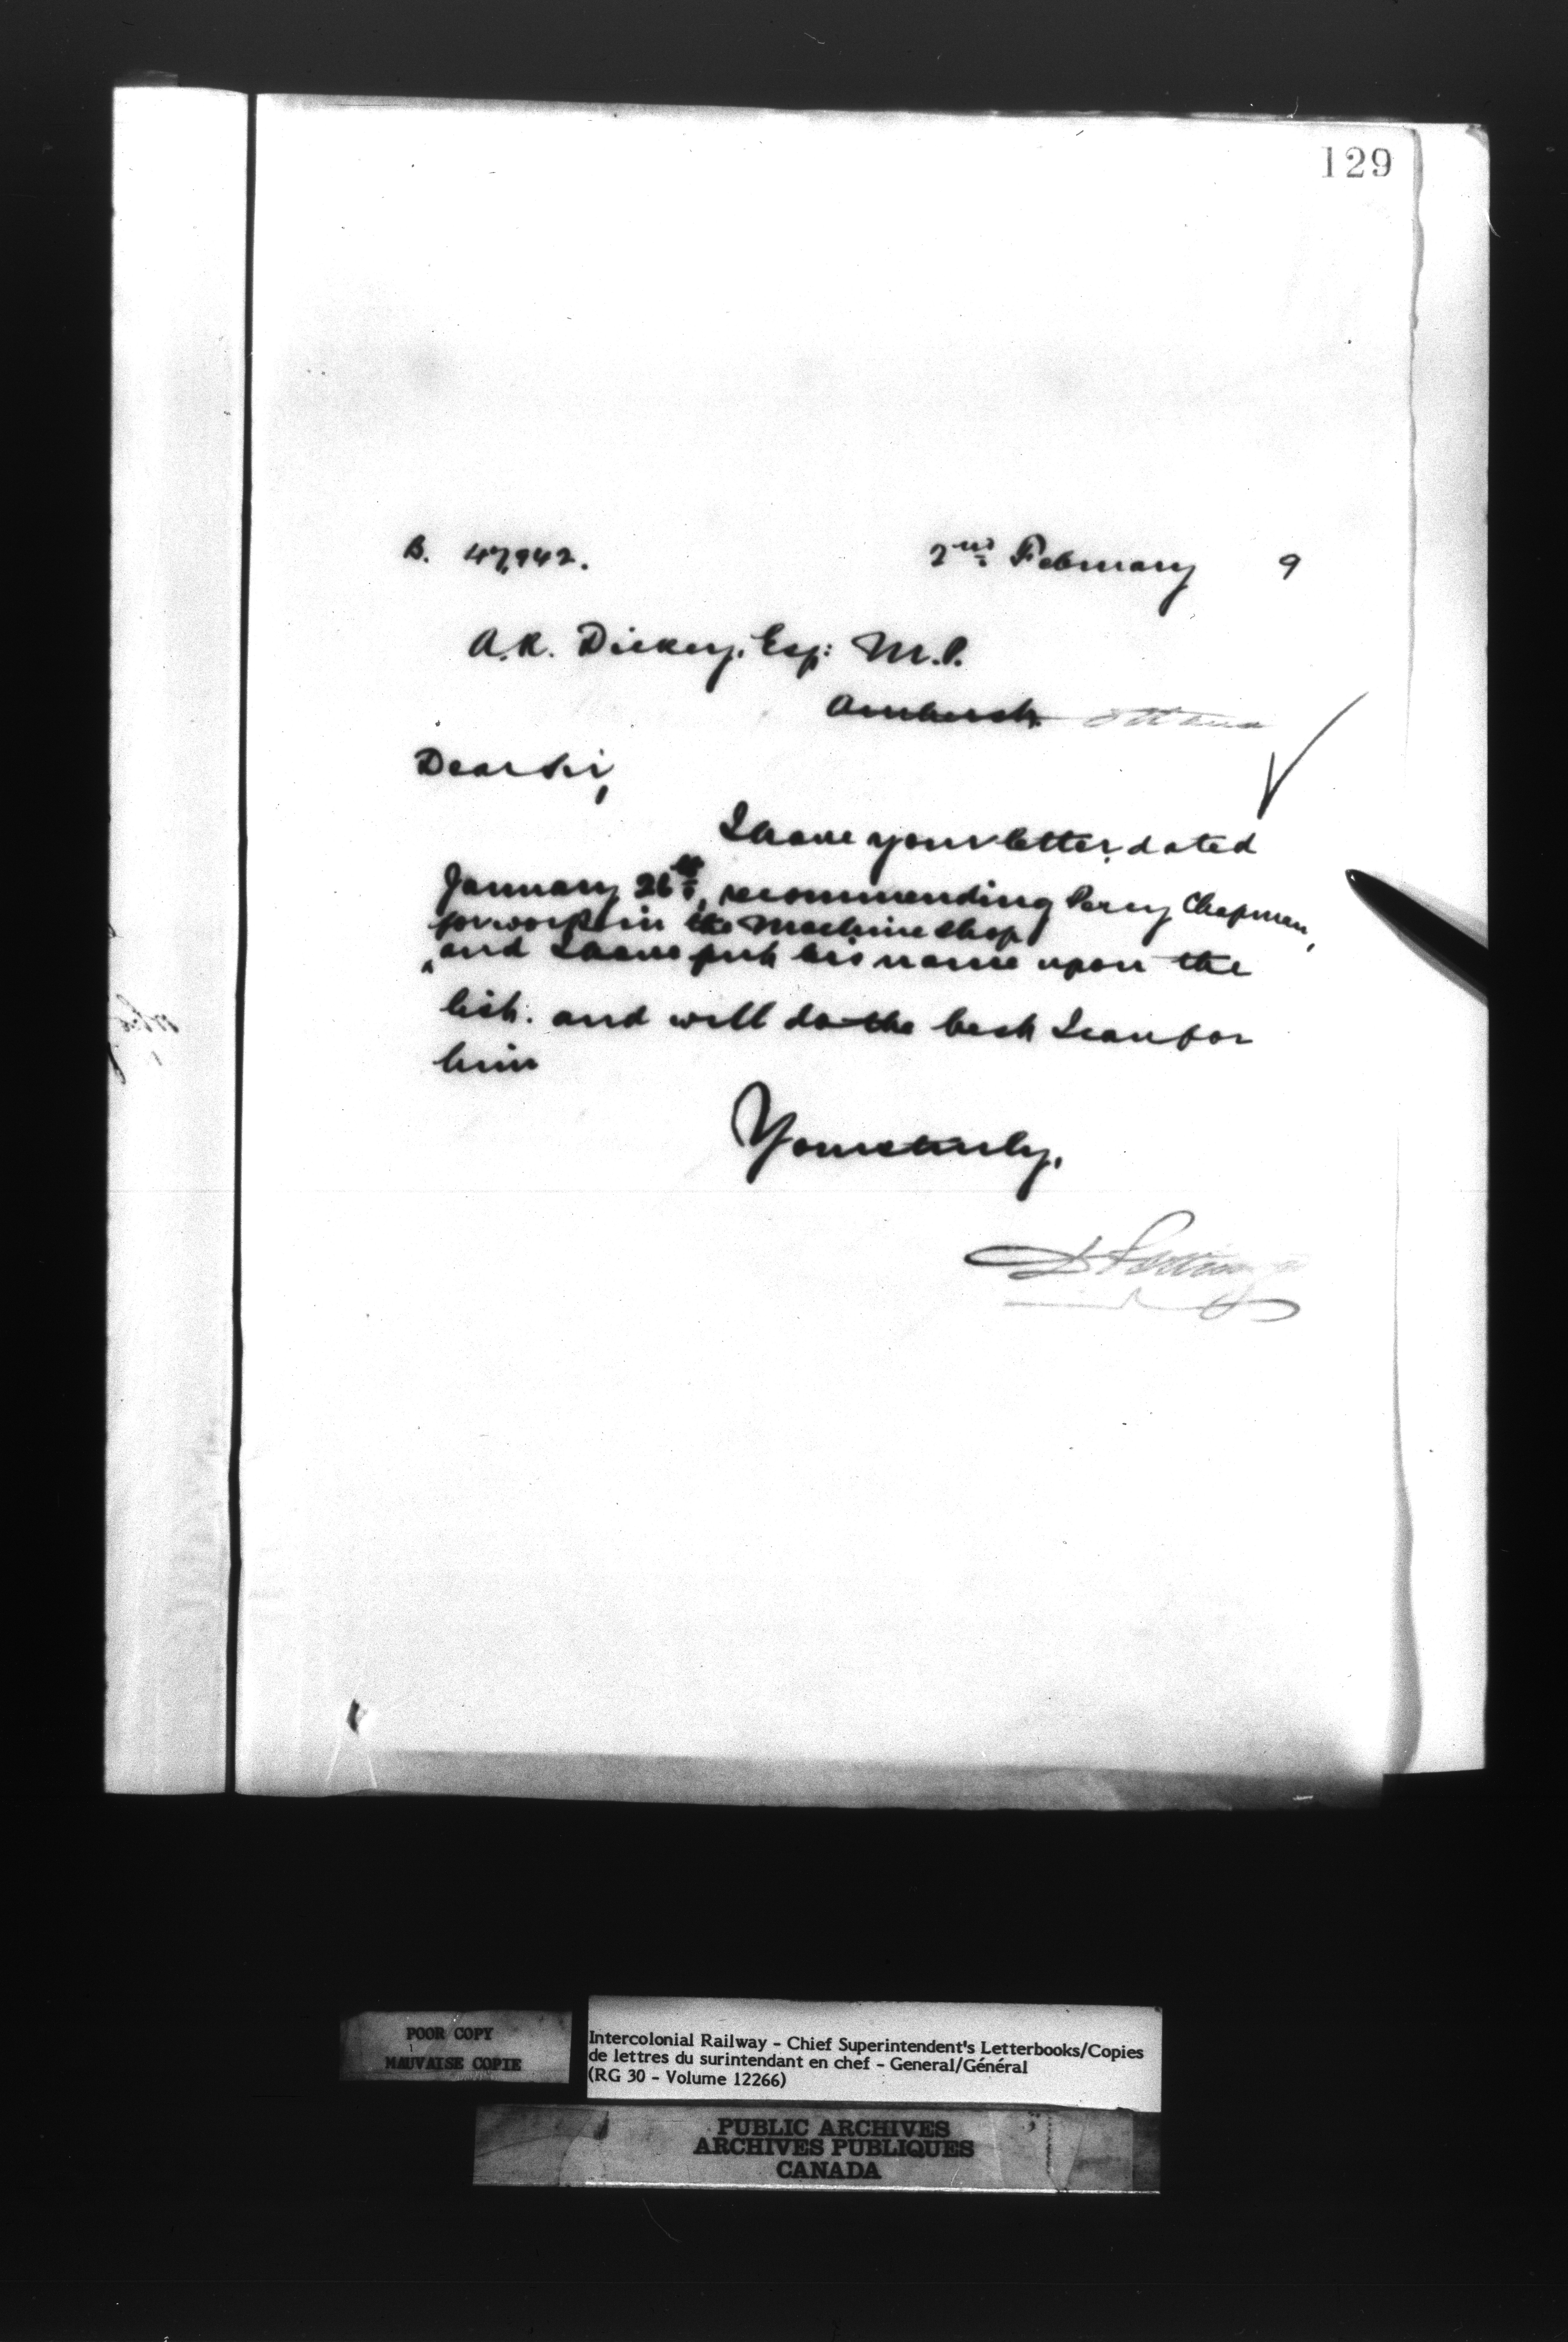 129
B. 47,942. 2nd February 9
A.R. Dickey, Esq: M.P.
Amherst. Ottawa
Dear Sir,
I have your letter dated
January 26th, recommending Percy Chapman,
for work in the Machine Shop
and I have put his name upon the
list. and will do the best I can for
him
Yours truly,
D Pottinger
POOR COPY
MAUVAISE COPIE
Intercolonial Railway - Chief Superintendent's Letterbooks/Copies
de lettres du surintendant en chef - General/Général
(RG 30 - Volume 12266)
PUBLIC ARCHIVES
ARCHIVES PUBLIQUES
CANADA